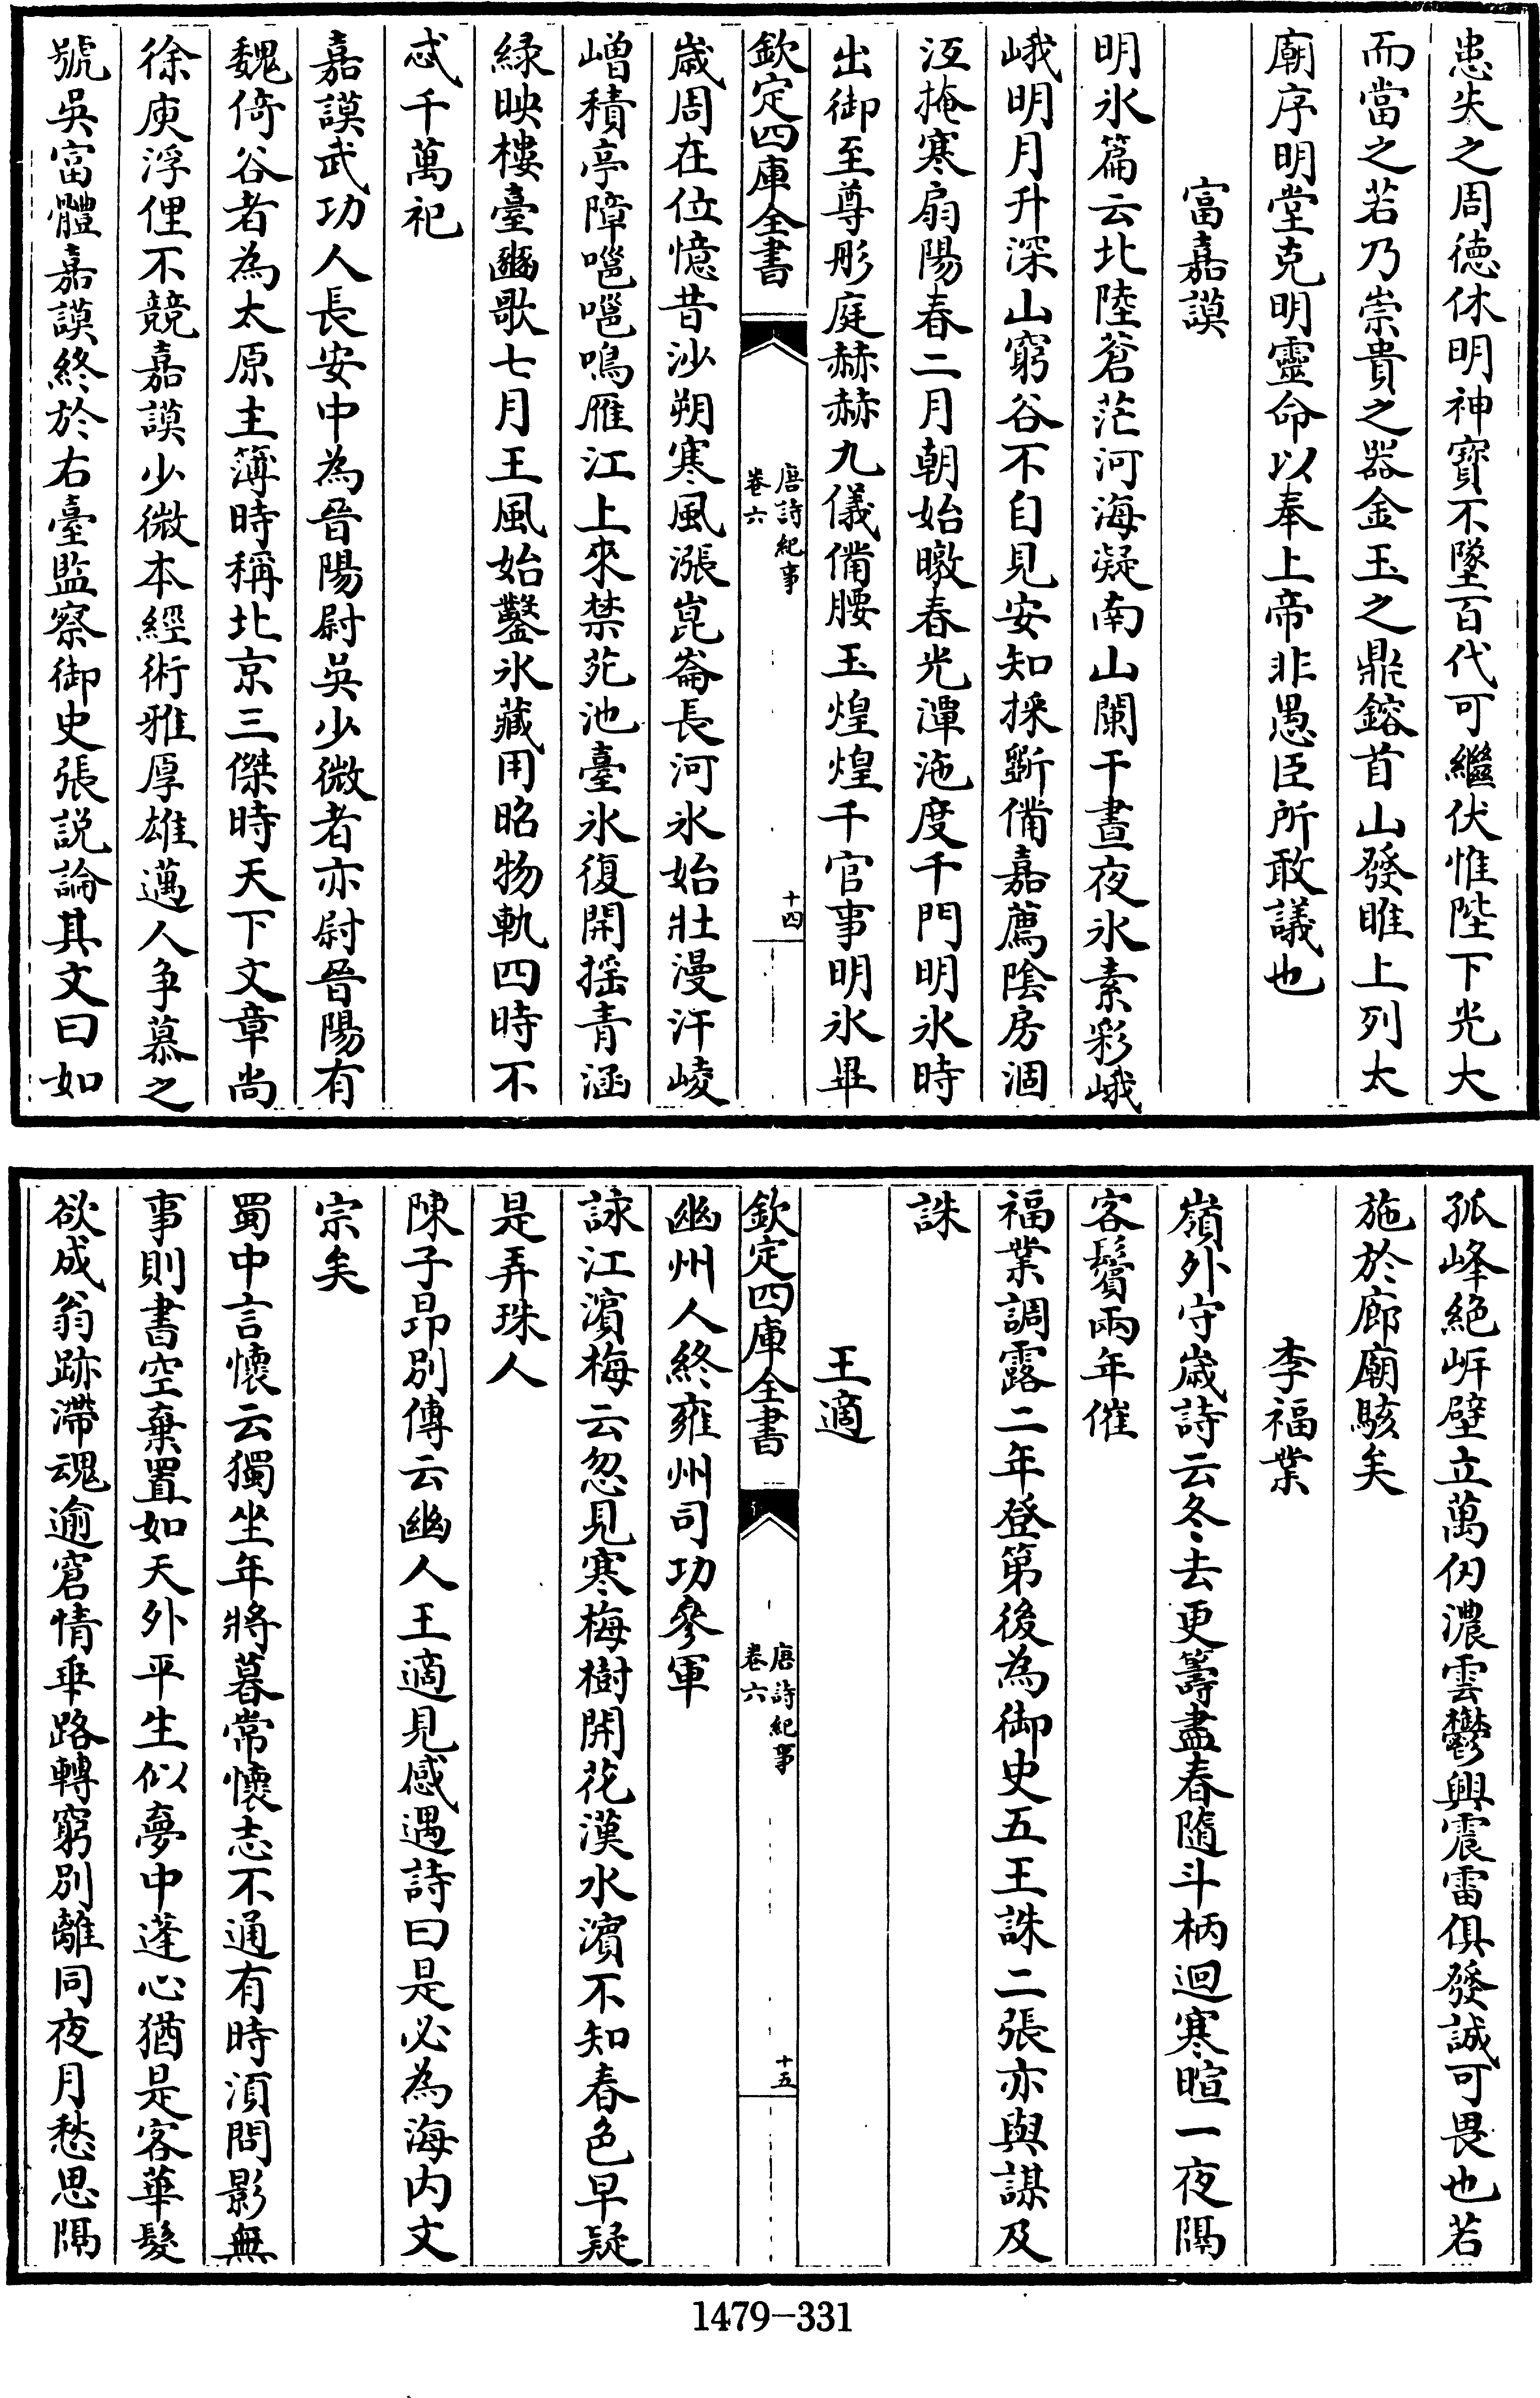 患失之周徳休明神寳不墜百代可繼伏惟陛下光大
而當之若乃崇貴之器金玉之鼎鎔首山發睢上列太
廟序明堂克明靈命以奉上帝非愚臣所敢議也
富嘉謨
明氷篇云北陸蒼茫河海凝南山闌干晝夜氷素彩峨
峨明月升深山窮谷不自見安知採斲備嘉薦隂房涸
沍掩寒扇陽春二月朝始暾春光潭沲度千門明氷時
出御至尊彤庭赫赫九儀備腰玉煌煌千官事明氷畢
欽定四庫全書
唐詩紀事
卷六
十四
歳周在位憶昔沙朔寒風漲崑崙長河氷始壯漫汗崚
嶒積亭障嗈嗈鳴雁江上來禁苑池臺氷復開揺青涵
緑映樓臺豳歌七月王風始鑿氷藏用昭物軌四時不
忒千萬祀
嘉謨武功人長安中為晉陽尉吳少微者亦尉晉陽有
魏倚谷者為太原主簿時稱北京三傑時天下文章尚
徐庾浮俚不競嘉謨少微本經術雅厚雄邁人争慕之
號吳富體嘉謨終於右臺監察御史張説論其文曰如
孤峰絶岍壁立萬仞濃雲鬱興震雷俱發誠可畏也若
施於廊廟駭矣
李福業
嶺外守歳詩云冬去更籌盡春隨斗柄迴寒暄一夜隔
客鬢兩年催
福業調露二年登第後為御史五王誅二張亦與謀及
誅
王適
欽定四庫全書
唐詩紀事
卷六
十五
幽州人終雍州司功參軍
詠江濱梅云忽見寒梅樹開花漢水濱不知春色早疑
是弄珠人
陳子昻別傳云幽人王適見感遇詩曰是必為海内文
宗矣
蜀中言懷云獨坐年將暮常懷志不通有時湏問影無
事則書空棄置如天外平生似夢中蓬心猶是客華髮
欲成翁跡滯魂逾窘情乖路轉窮別離同夜月愁思隔
1479-331